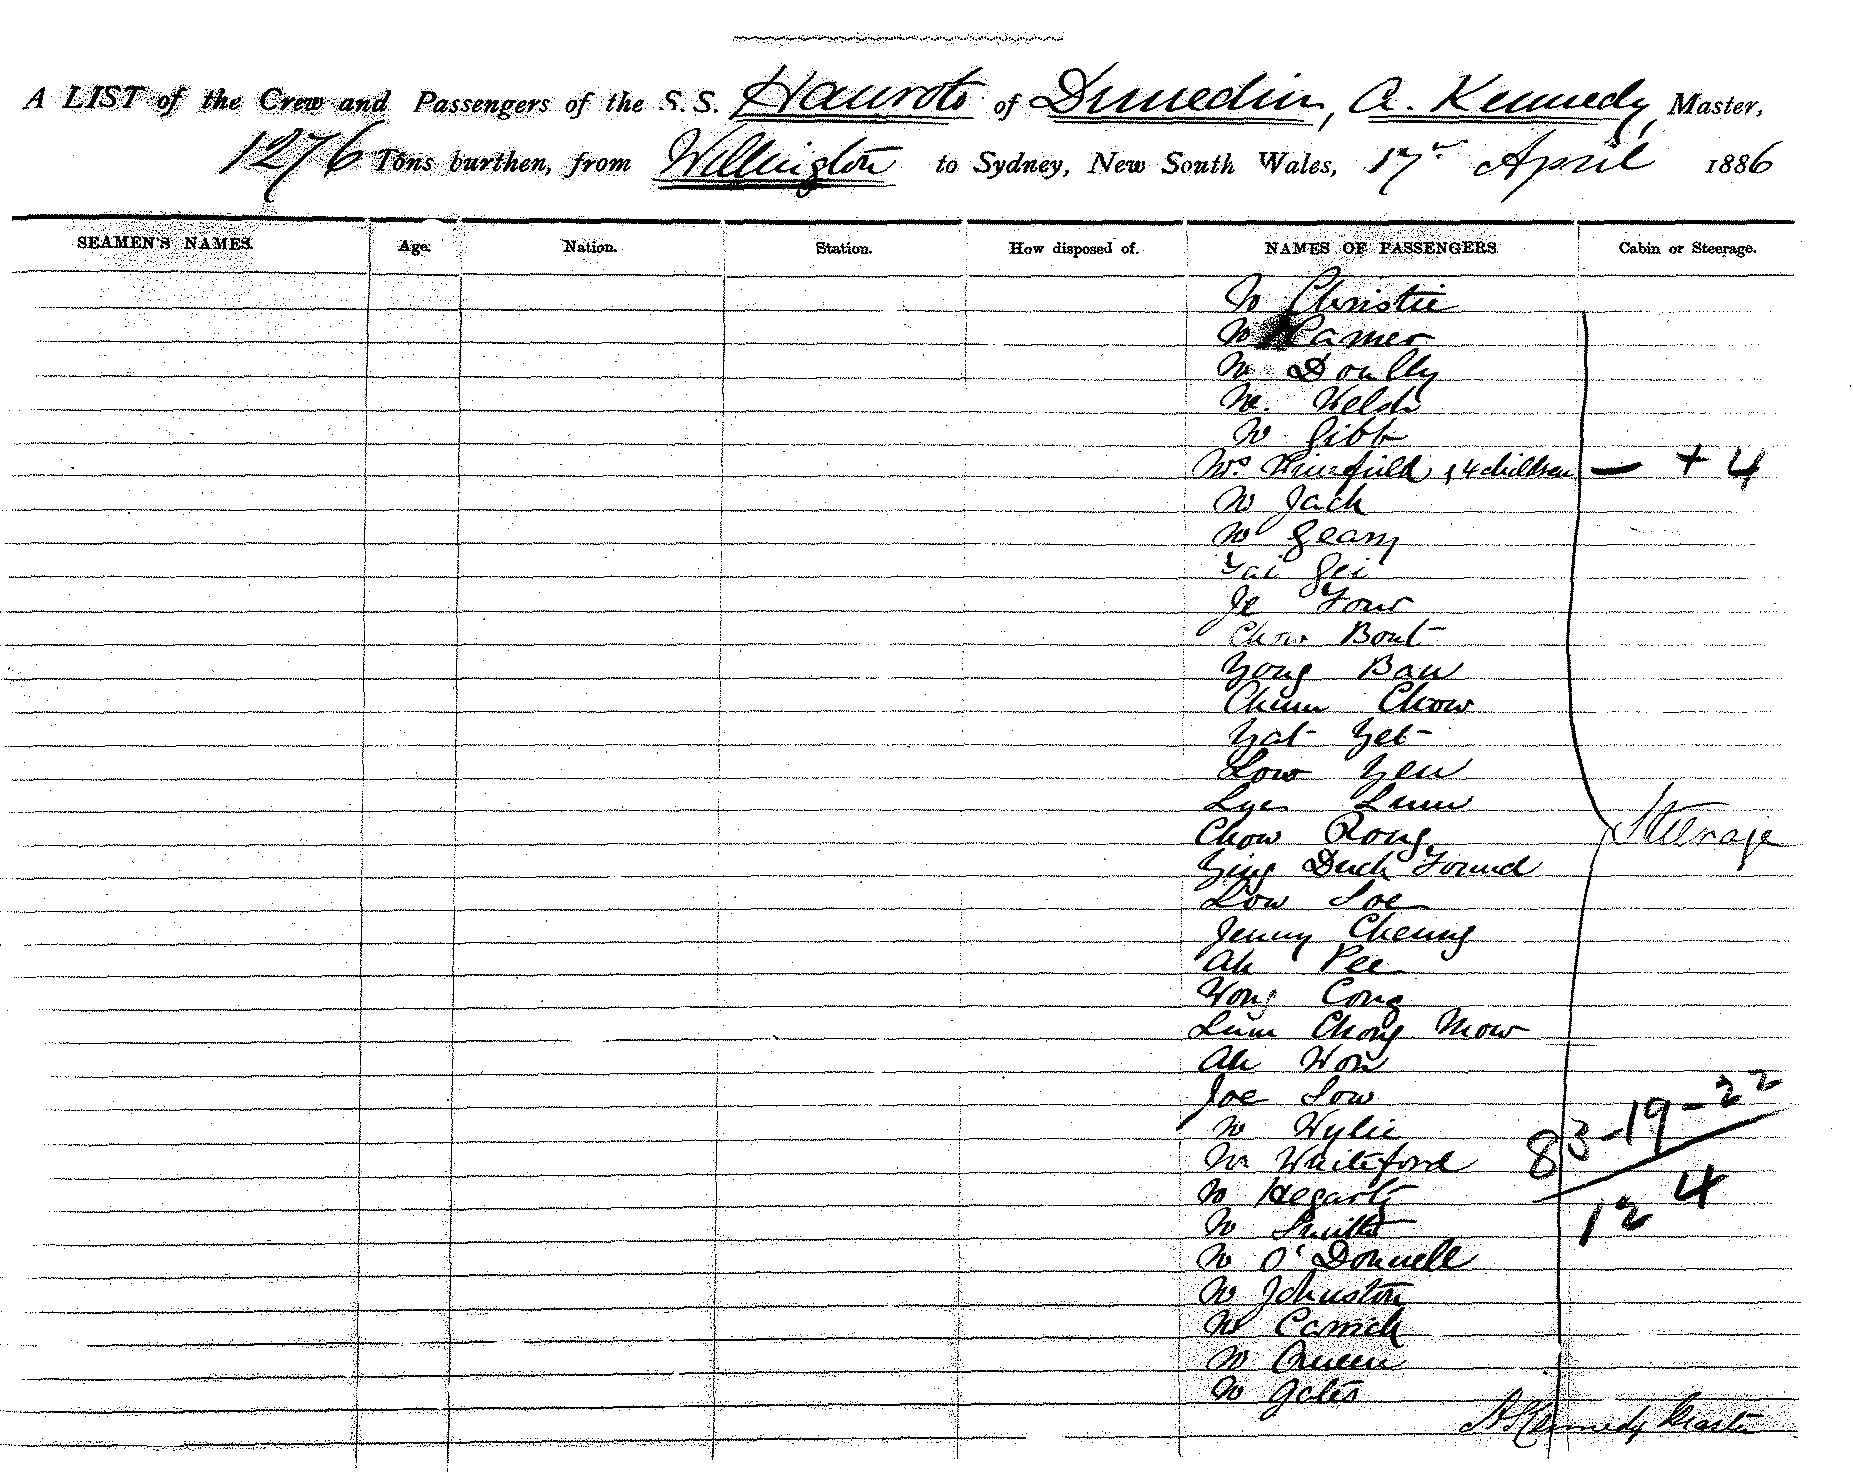 A LIST of the Crew and Passengers of the S.S. Hauroto of Dunedin, A. Kennedy, Master,
1276 Tons burthen, from Wellington to Sydney, New South Wales, 17 April 1886
SEAMEN'S NAMES. Age. Nation. Station. How disposed of. NAMES OF PASSENGERS Cabin or Steerage.
Mr Christie
Mr Ramer
Mr Donlly
Mr Welsh
Mr Gibb
Mrs & 4 children — + 4
Mr Jack
Mr Geary
Yai Gei
Je Four
Chow Bout
Yong Bau
Chum Chow
Yat Yet
Low Yeu
Lye Lum
Chow Rong Steerage
Ying Duck Found
Low Soe
Jenny Cheung
Ah Pee
Wong Cong
Lum Chong Mow
Ah Won
Joe Low
Mr Wylie
Mr Whiteford 83-19-22
Mr Hegarty 124
Mr Smith
Mr O'Donnell
Mr Johnston
Mr Carrick
Mr Queen
Mr Gates
A Kennedy Master